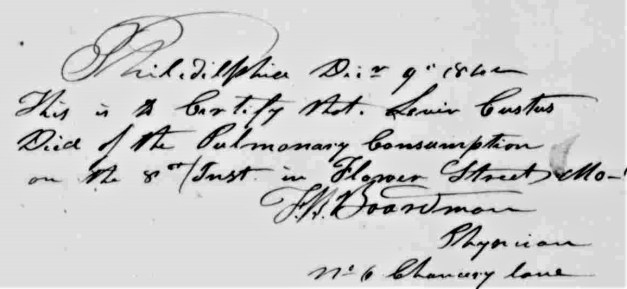 Philidilphia Decr 9th 1842
This is to Certify that. Levin Custus
Died of the Pulmonary Consumption
on the 8th Inst. in Flower Street, Mo-
J. B. Boardman
Physician
No 6 Chancery lane